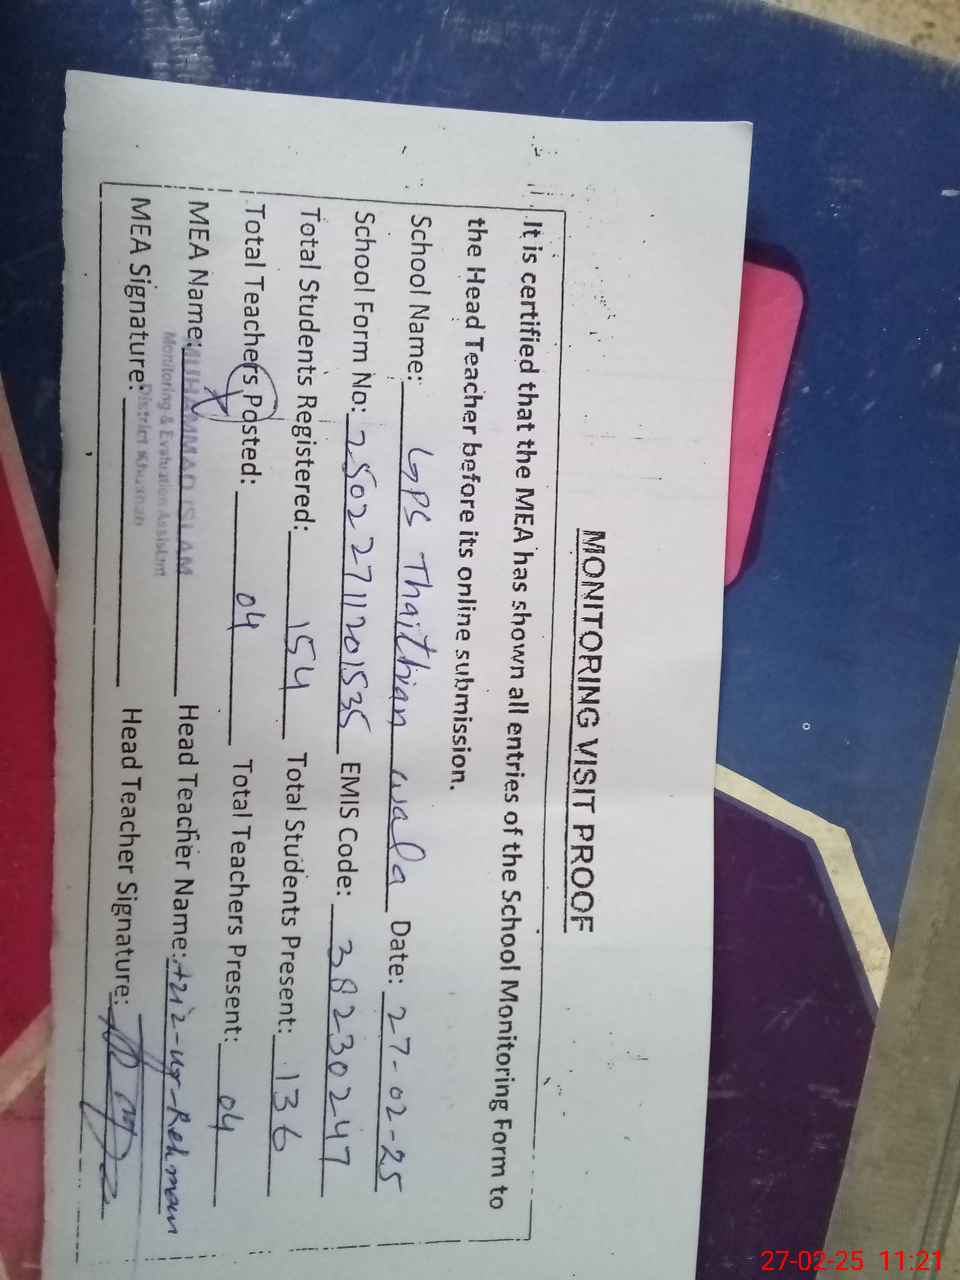 MONITORING VISIT PROOF
It is certified that the MEA has shown all entries of the School Monitoring Form to
the Head Teacher before its online submission.
School Name: GPS Thaithian wala Date: 27-02-25
School Form No: 25022711201535 EMIS Code: 38230247
Total Students Registered: 154 Total Students Present: 136
Total Teachers Posted: 04 Total Teachers Present: 04
MEA Name: MUHAMMAD ISLAM Head Teacher Name: Aziz-ur-Rehman
Monitoring & Evaluation Assistant
District Khushab
MEA Signature: Head Teacher Signature:
27-02-25 11:21